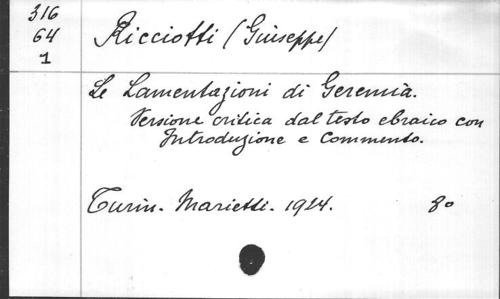 316
64
1
Ricciotti (Giuseppe)
Le Lamentazioni di Geremia.
Versione critica dal testo ebraico con
Introduzione e Commento.
Turin. Marietti. 1924. 8º